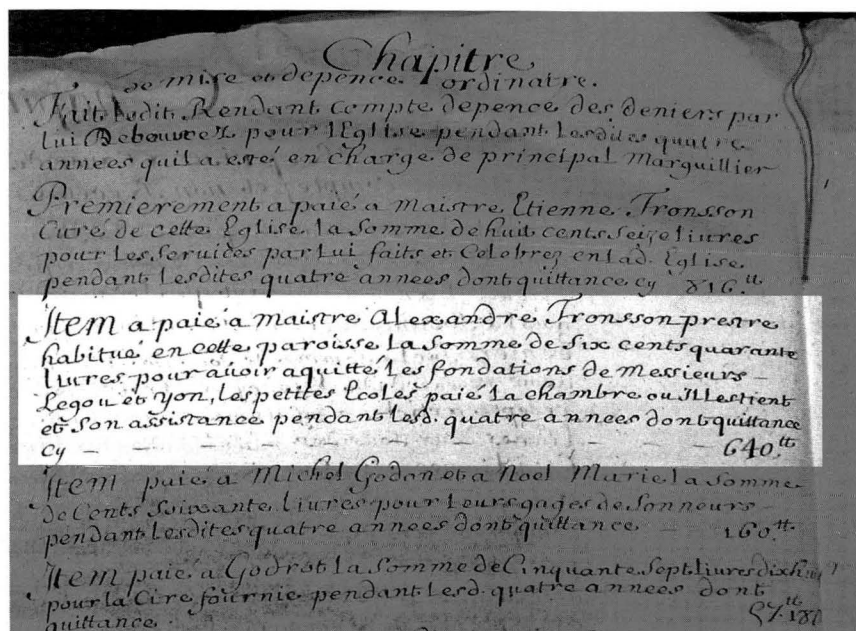 Chapitre
de mise et depence ordinaire.
Fait ledit Rendant Compte depence des deniers par
lui Debourez pour l'Eglise pendant lesdites quatre
années quil a esté en charge de principal Marguillier
Premierement a paié a Maistre Etienne Tronsson
Curé de cette Eglise la somme de huit cents seize livres
pour les services par lui faits et Celebrez en lad. Eglise
pendant lesdites quatre années dont quittance cy 816.tt
Item a paié a Maistre Alexandre Tronsson prestre
habitué en cette paroisse la somme de six cents quarante
livres pour auoir aquitté les fondations de Messieurs
Legou et yon, les petites Ecoles paié la chambre ou Il les tient
et son assistance pendant lesd. quatre années dont quittance
cy - - - - - - - 640.tt
Item paié a Michel Godon et a Noel Marie la somme
de Cents soixante livres pour leurs gages de sonneurs -
pendant lesdites quatre années dont quittance - 160.tt
Item paié a Godrot la somme de Cinquante sept livres
pour la Cire fournie pendant lesd. quatre années dont
quittance. 57.tt